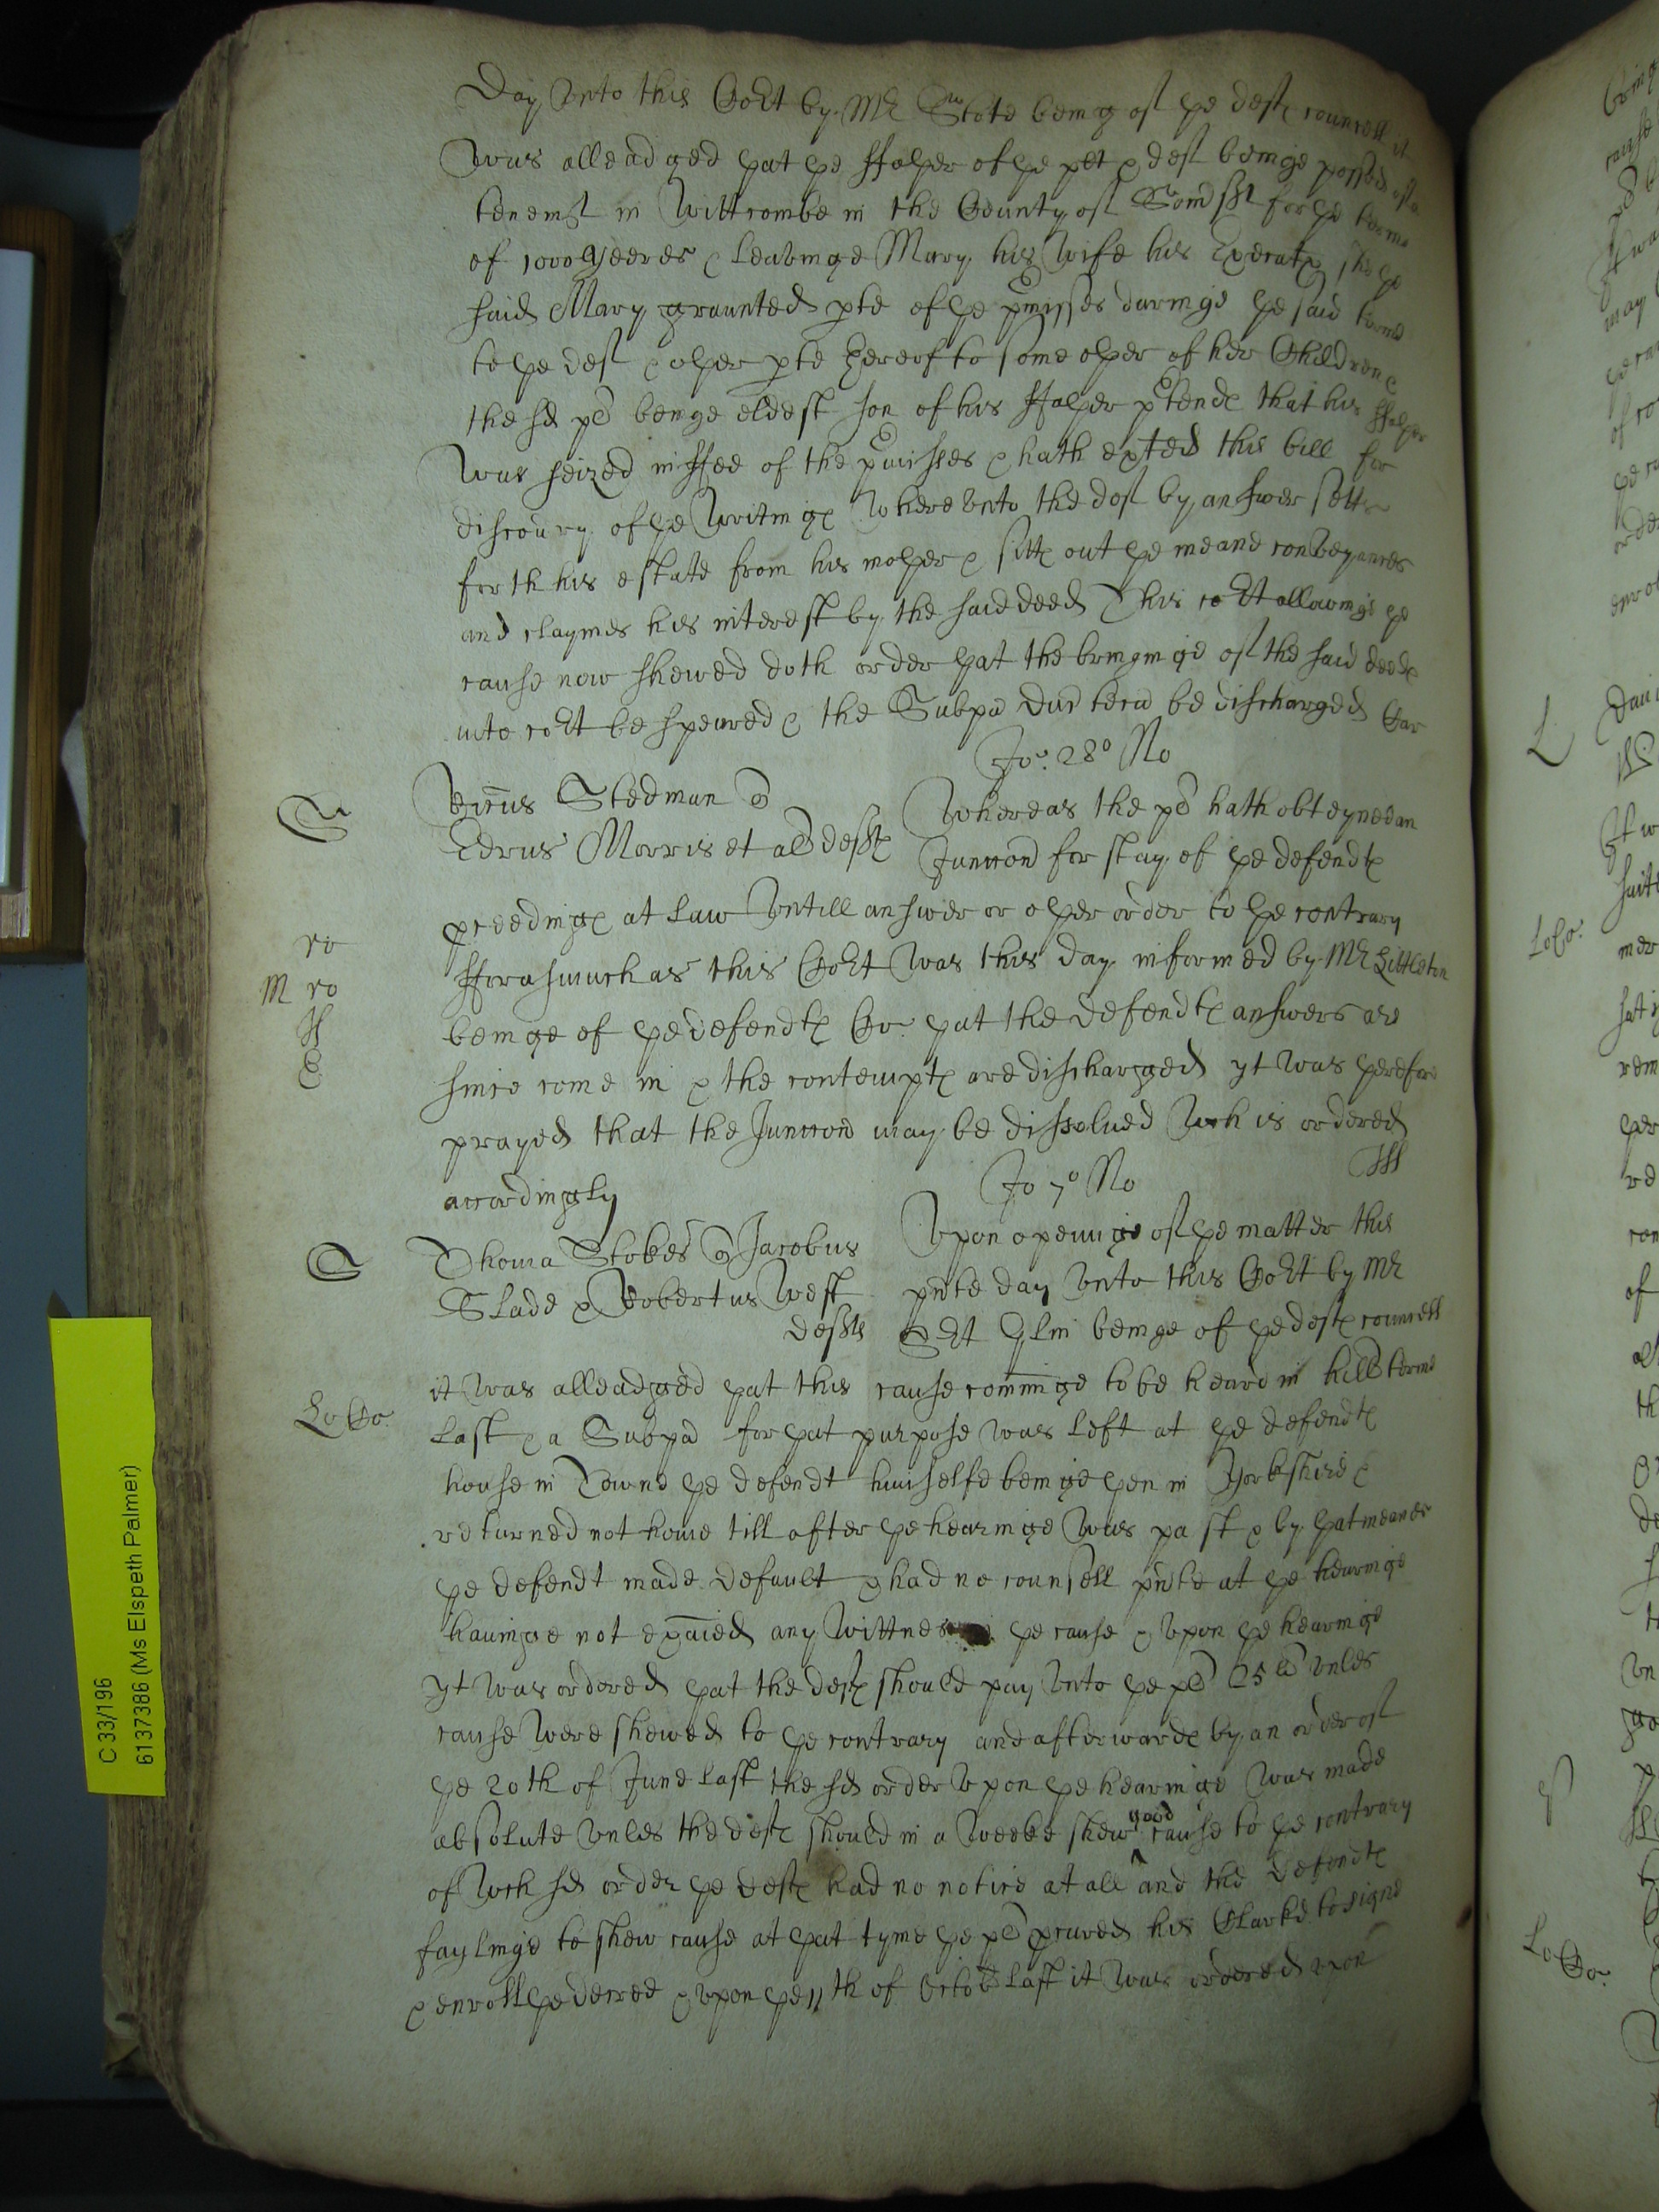 Day vnto this Co^rt by M^r Stote being of ye def^ts councell it
was alleadged yat ye ffather of ye pl^t & def^t beinge possed of a
tenem^t in Wittcombe in the County of Som^rs^t for ye terme
of 1000 yeeres & leavinge Mary his wife his Execut^x she ye
said Mary graunted p^te of ye p^rmisses duringe ye said terme
to ye def^t & other p^te thereof to some other of her Children &
the s^d pl^t beinge eldest son of his ffather p^rtends that his ffather
was seized in ffee of the p^rmisses & hath exhited this bill for
discouery of ye writings Wherevnto the def^t by answer setts
forth his estate from his mother & setts out ye meane conveyances
and claymes his interest by the said deed This co^rt allowinge ye
cause now shewed doth order yat the bringinge of the said deeds
into co^rt be speared & the Subpa duc tecu be discharged Car
Jo^s. 28° No
Stedman
Whereas the pl^t hath obteyned an
Edrus Morris et al defts
Junccon for stay of ye defend^ts
pceedings at law vntill answer or other order to ye contrary
fforasmuch as this Co^rt was this day informed by M^r Littleton
beinge of ye defend^ts Co that the defend^ts answers are
since come in & the contempts are discharged yt was yerefore
prayed that the Junccon may be dissolued w^ch is ordered
accordingly
Jo 7° No
ro
M ro
Thoma Stokes Jacobus
Vpon openinge of ye matter this
Slade & Robertus West
pnte day vnto this Co^rt by M^r
defts
S^rt Glin beinge of ye def^ts councell
it was alleadged yat this cause comminge to be heard in hill terme
Lo Co.
last & a Subpa for yat purpose was left at ye defend^ts
house in Towne ye defend^t himselfe beinge yen in Yorkshire &
returned not home till after ye hearinge was past & by yat meanes
ye defend^t made default & had no counsell pnte at ye hearinge
hauinge not exaied any wittnes ye cause & vpon ye hearinge
yt was ordered yat the def^ts should pay vnto ye pl^t 25^li vnles
cause were shewed to ye contrary and afterwards by an order of
ye 20th of June last the s^d order vpon ye hearinge was made
absolute vnles the def^ts should in a weeke shew good cause to ye contrary
of w^ch s^d order ye def^ts had no notice at all and the defend^ts
faylinge to shew cause at yat tyme ye pl^t pcured his Clarke to signe
& enroll ye decree & vpon ye 11th of Octob last it was ordered vpon
Lo Co.
Lo Co.
C 33/196
6137386 (Ms Elspeth Palmer)